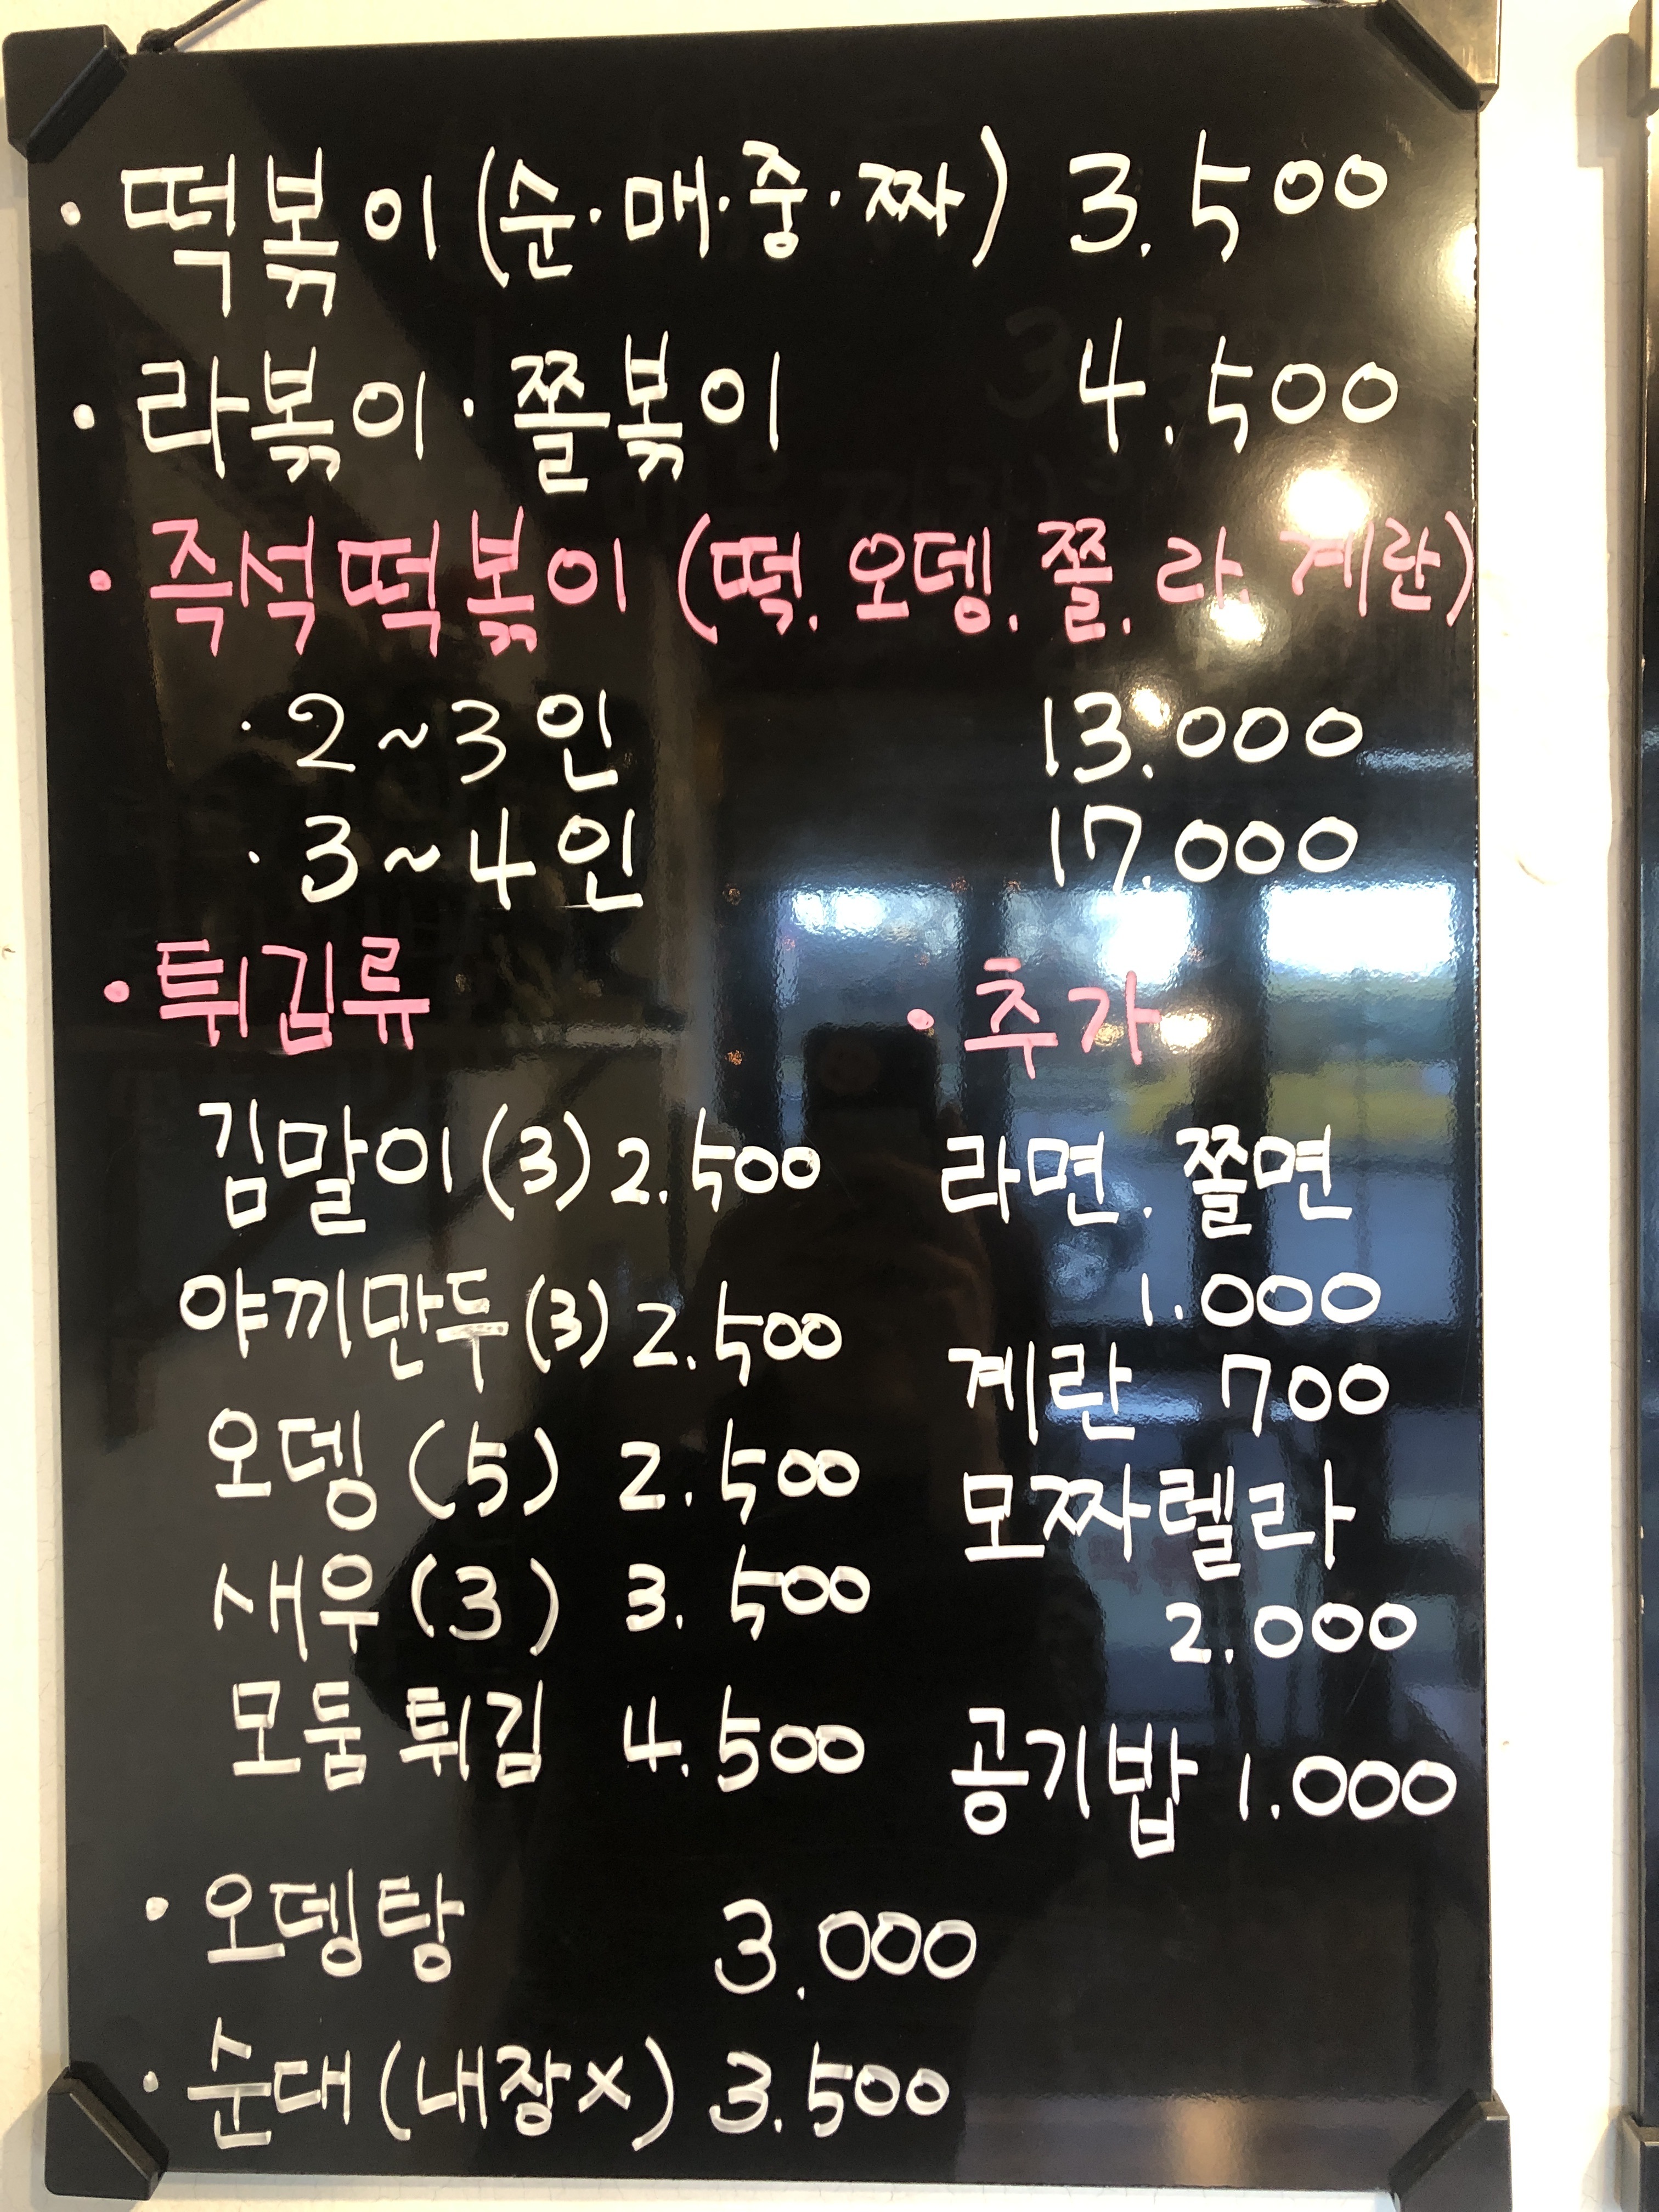 · 떡볶이 (순·매·중·짜) 3.500
· 라볶이·쫄볶이 4.500
· 즉석떡볶이 (떡. 오뎅. 쫄. 라. 계란)
· 2~3인 13.000
· 3~4인 17.000
· 튀김류
김말이 (3) 2.500
야끼만두 (3) 2.500
오뎅 (5) 2.500
새우 (3) 3.500
모둠 튀김 4.500
· 추가
라면. 쫄면
1.000
계란 700
모짜렐라
2.000
공기밥 1.000
· 오뎅탕 3.000
· 순대 (내장x) 3.500